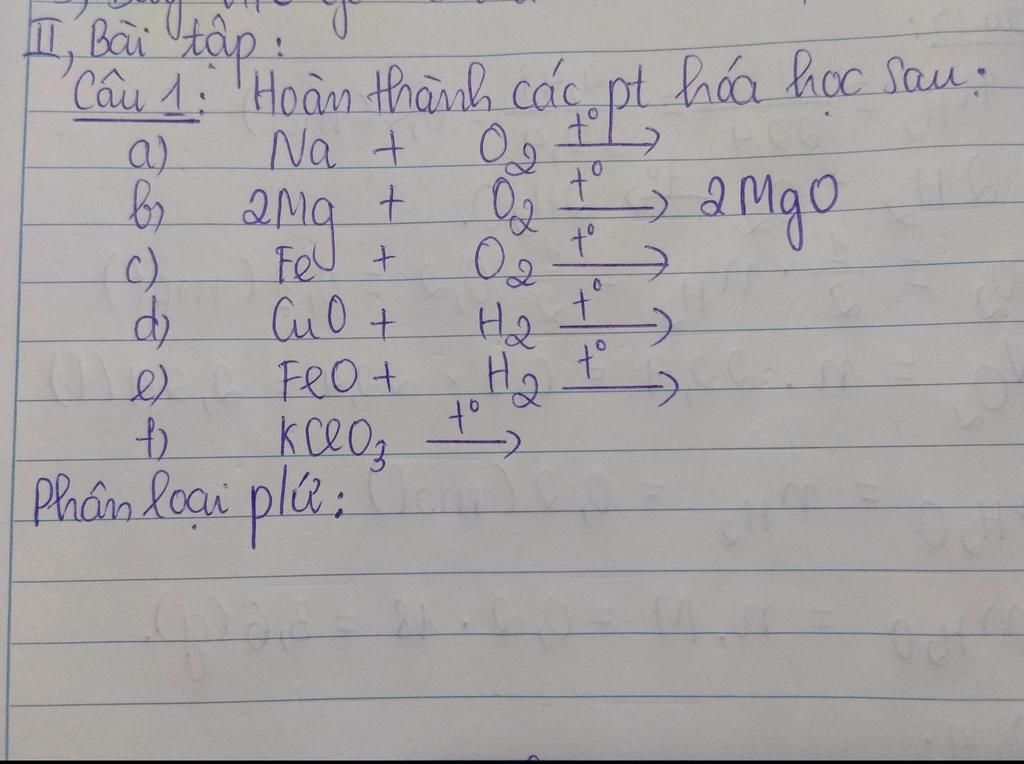 II, Bài tập:
Câu 1: Hoàn thành các pt hóa học sau:
a) Na + O2 t° →
b) 2Mg + O2 t° → 2MgO
c) Fe + O2 t° →
d) CuO + H2 t° →
e) FeO + H2 t° →
f) KClO3 t° →
Phân loại p/ứ: